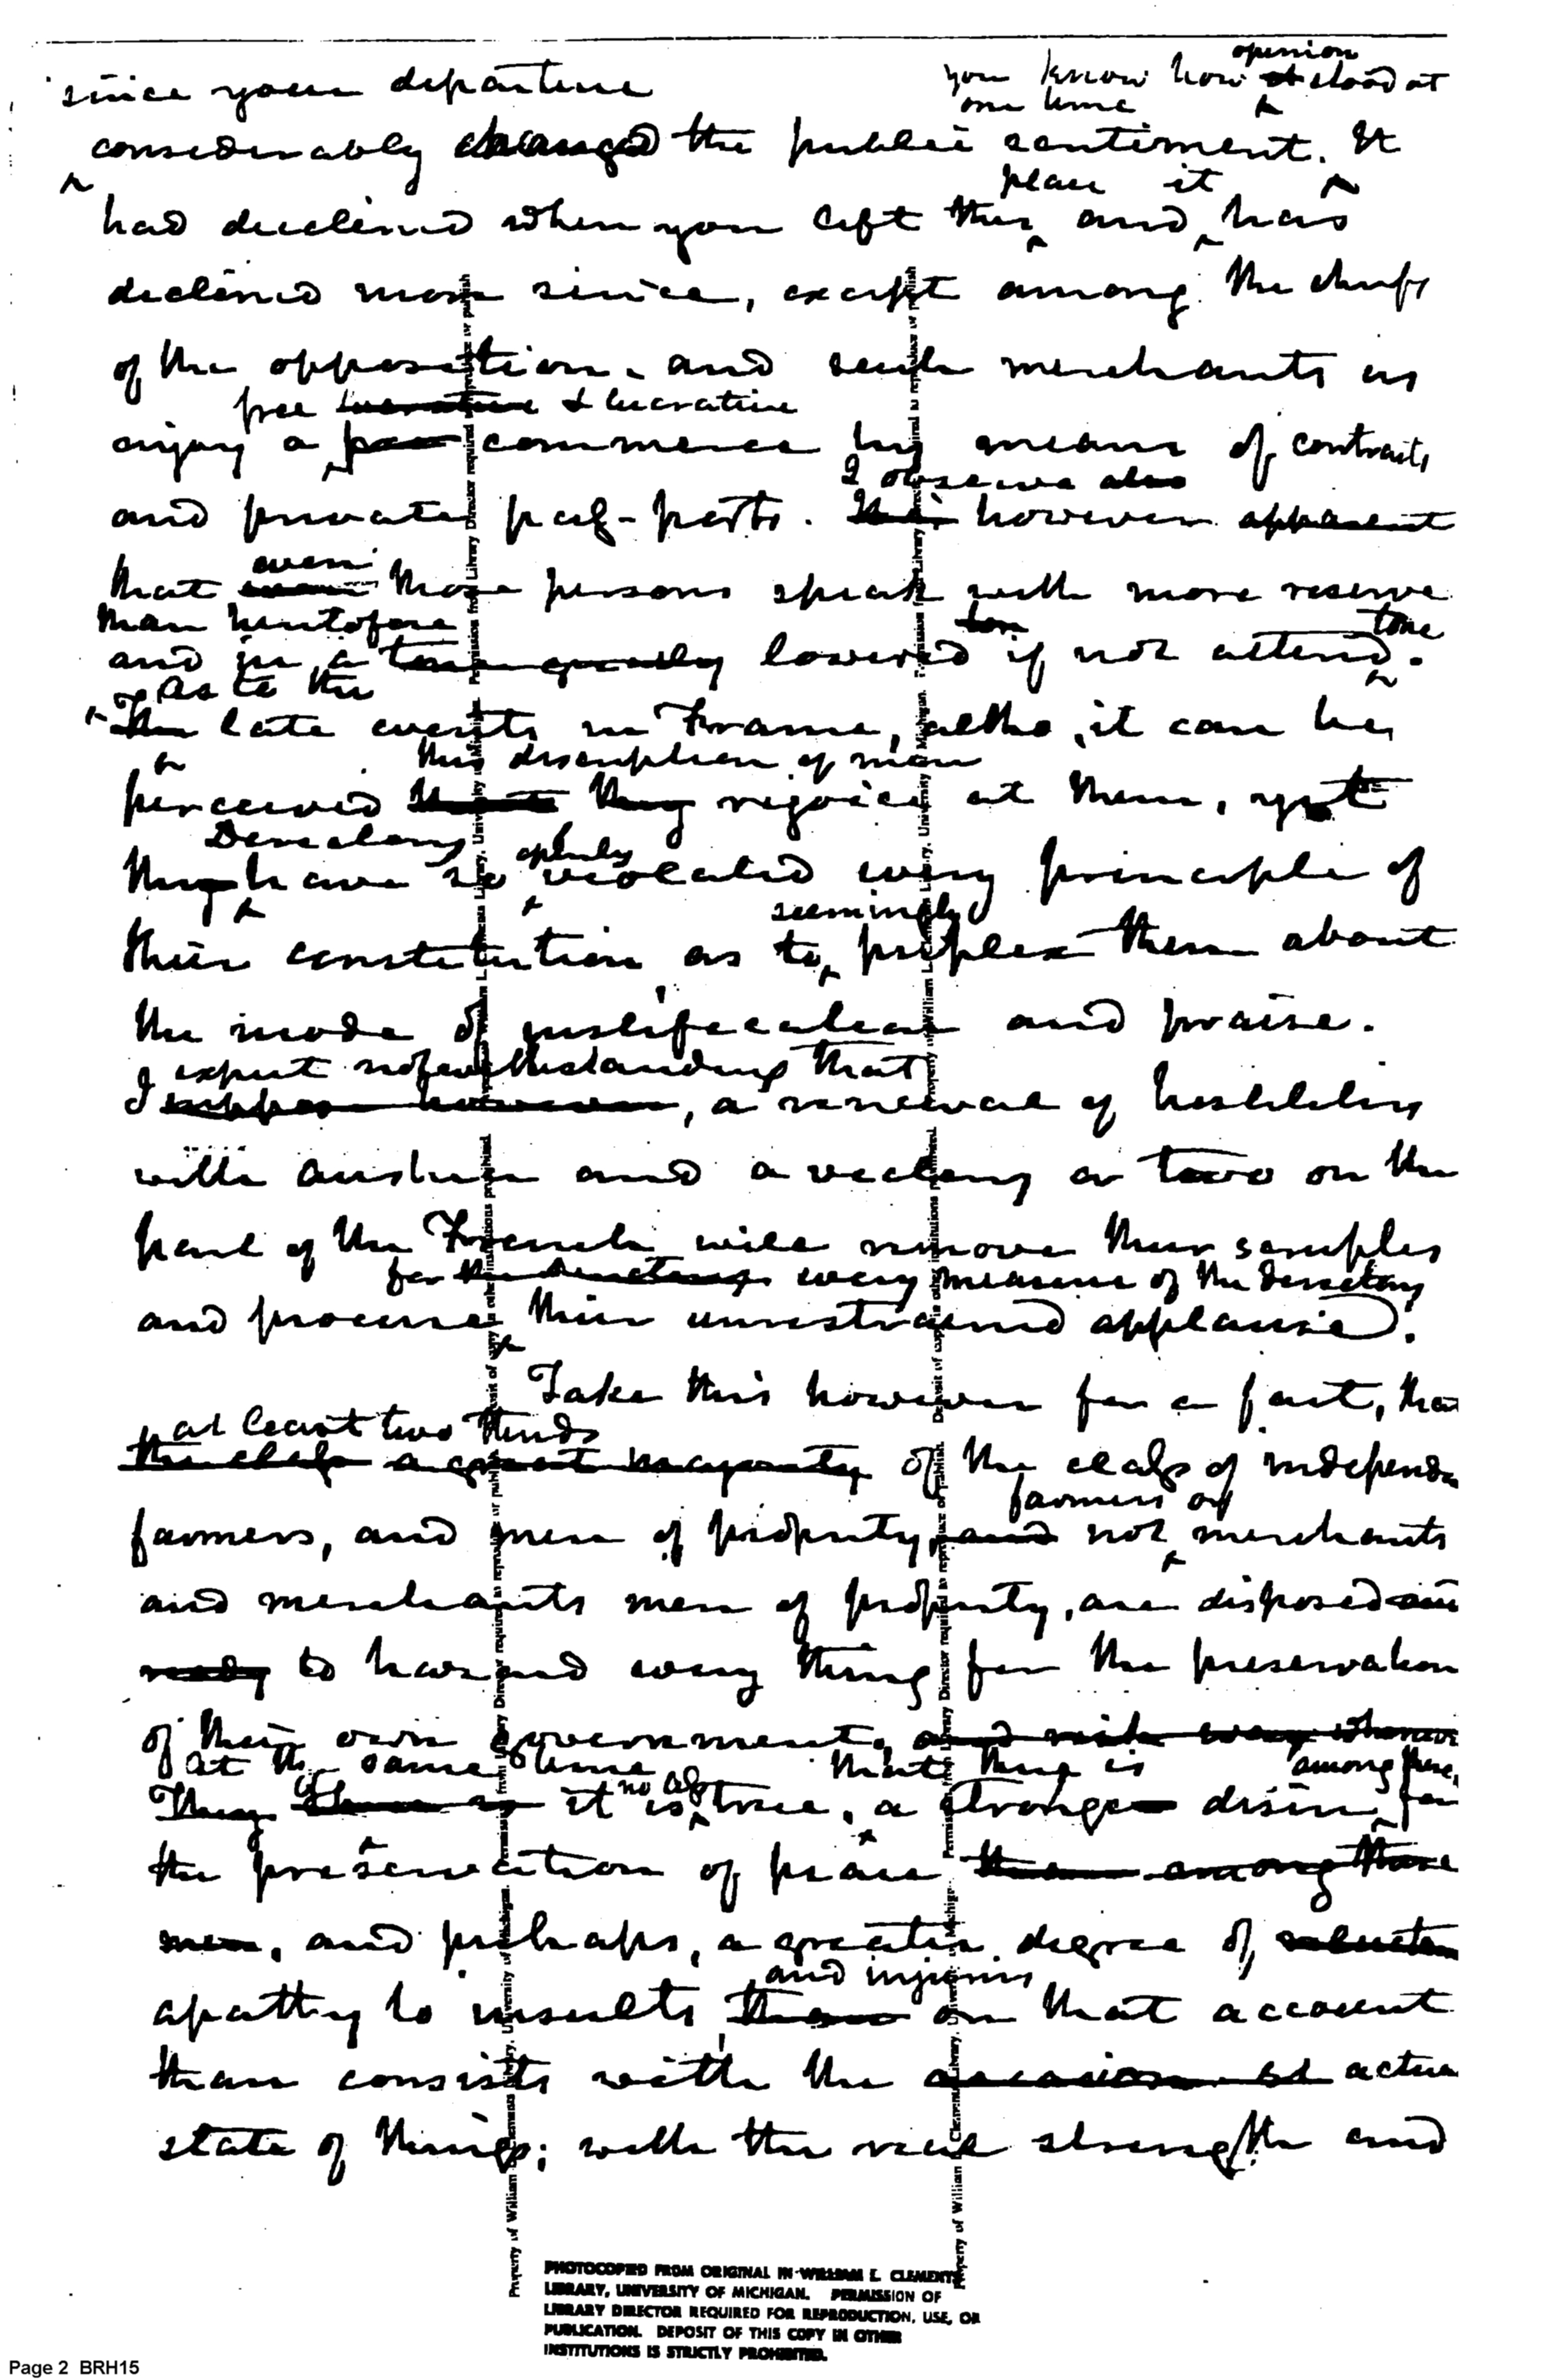 since your departure
you know how ~~it~~ opinion stood at
one time
considerably changed the public sentiment. It
place it
had declined when you left this and has
declined more since, except among the chiefs
of the opposition, and such merchants as
free ~~lucrative~~ & lucrative
enjoy a ~~free~~ commerce by means of contracts
I observe also
and private pass-ports. however ~~apparent~~
even
that ~~even~~ those persons speak with more reserve
than heretofore
~~ton~~ tone
and in a ~~tone greatly~~ lowered if not altered.
As to the
~~The~~ late events in France, altho, it can be,
this description of men
perceived ~~that they~~ rejoice at them, yet
Directory openly
~~they~~ have so violated every principle of
seemingly
their constitution as to perplex them about
the mode of justification and praise.
expect notwithstanding that
I ~~suppose however~~, a renewal of hostilities
with austria and a victory or two on the
part of the French will remove their scruples
for ~~the directory~~ every measure of the directory
and procure their unrestrained applause.
Take this however for a fact, that
at least two thirds
~~the class a great majority~~ of the class of independen
farmers or
farmers, and men of property, ~~and~~ not merchants
and merchants men of property, are disposed ~~and~~
~~ready~~ to hazard every thing for the preservation
of their own government, ~~and risk every whenever~~
at the same time that there is among these,
no less
it is true, a strong desire for
the preservation of peace ~~them among those~~
~~men~~, and perhaps, a greater degree of
and injuries
apathy to insults, on that account
than consists with the actua
state of things; with the real strength and
Property of William L. Clements Library, University of Michigan. Permission from Library Director required to reproduce or publish. Deposit of copy in other institutions prohibited.
Property of William L. Clements Library, University of Michigan. Permission from Library Director required to reproduce or publish. Deposit of copy in other institutions prohibited.
PHOTOCOPIED FROM ORIGINAL IN WILLIAM L. CLEMENTS
LIBRARY, UNIVERSITY OF MICHIGAN. PERMISSION OF
LIBRARY DIRECTOR REQUIRED FOR REPRODUCTION, USE, OR
PUBLICATION. DEPOSIT OF THIS COPY IN OTHER
INSTITUTIONS IS STRICTLY PROHIBITED.
Page 2 BRH15